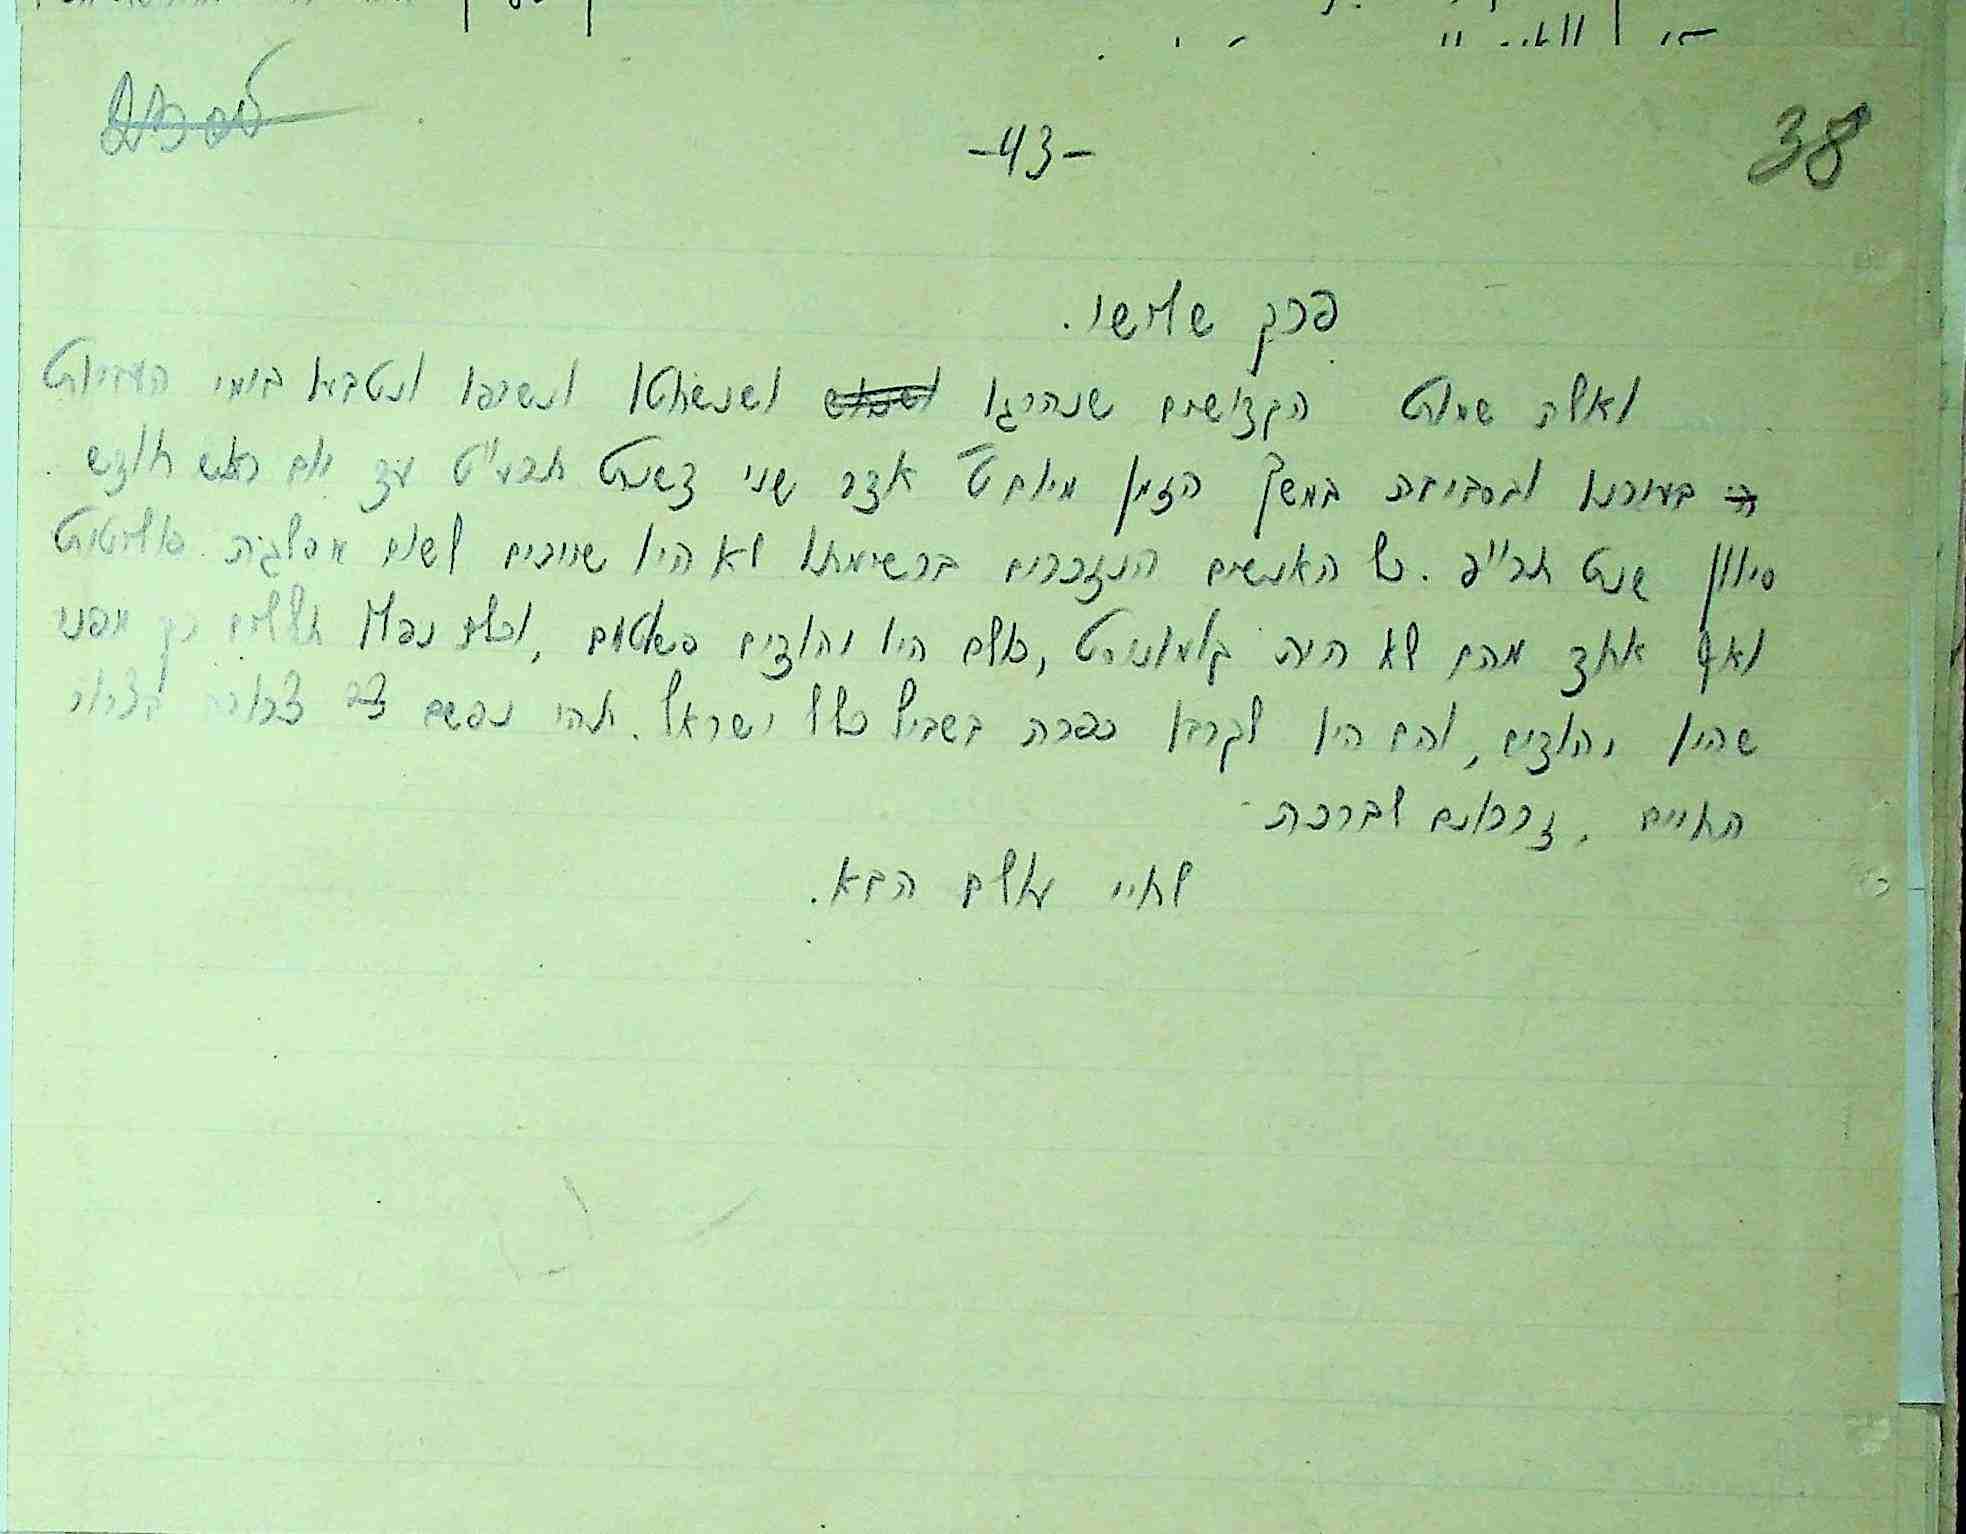 38
-43-
פרק שלישי.
ואלה שמות הקדושים שנהרגו ושנשחטו ונשרפו ונטבעו בימי הפרעות
בעירנו ובסביבה במשך הזמן מיום ט' אדר שני דשנת תרע"ט עד יום ראש חודש
סיון שנת תר"פ. כל האנשים הנזכרים ברשימתנו לא היו שייכים לשום מפלגה פוליטית
ואף אחד מהם לא היה קומוניסט, כולם היו יהודים פשוטים, וכולם נפלו חללים רק מפני
שהיו יהודים, והם היו לקרבן כפרה בשביל כלל ישראל. תהי נפשם צרורה בצרור
החיים. זכרונם לברכה
לחיי עולם הבא.